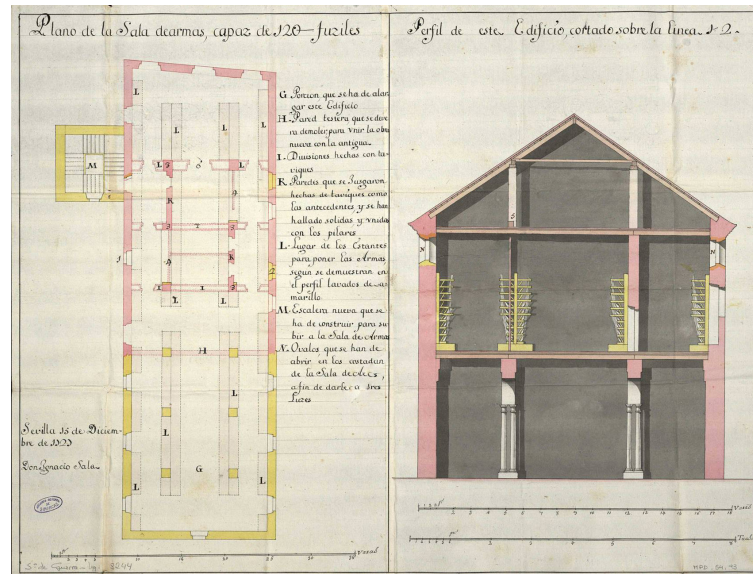 Plano de la Sala de armas, capaz de 120 fuziles
Perfil de este Edificio, cortado sobre la linea 1-2.
G. Porcion que se ha de alar
gar este Edificio
H. Pared testera que se deve
ra demoler para vnir la obra
nueva con la antigua.
I. Divisiones hechas con ta-
viques
K. Paredes que se Jusgaron
hechas de taviques como
los antecedentes y se han
hallado solidas y vnidas
con los pilares
L. Lugar de los Estantes
para poner las Armas
segun se demuestran en
el perfil lavados de a-
marillo
M. Escalera nueva que se
ha de construir para su
bir a la Sala de Armas
N. Ovalos que se han de
abrir en los costados
de la Sala
a fin de darle a
Luzes
Sevilla 15 de Diciem-
bre de
Don Ignacio Sala
Varas
Varas